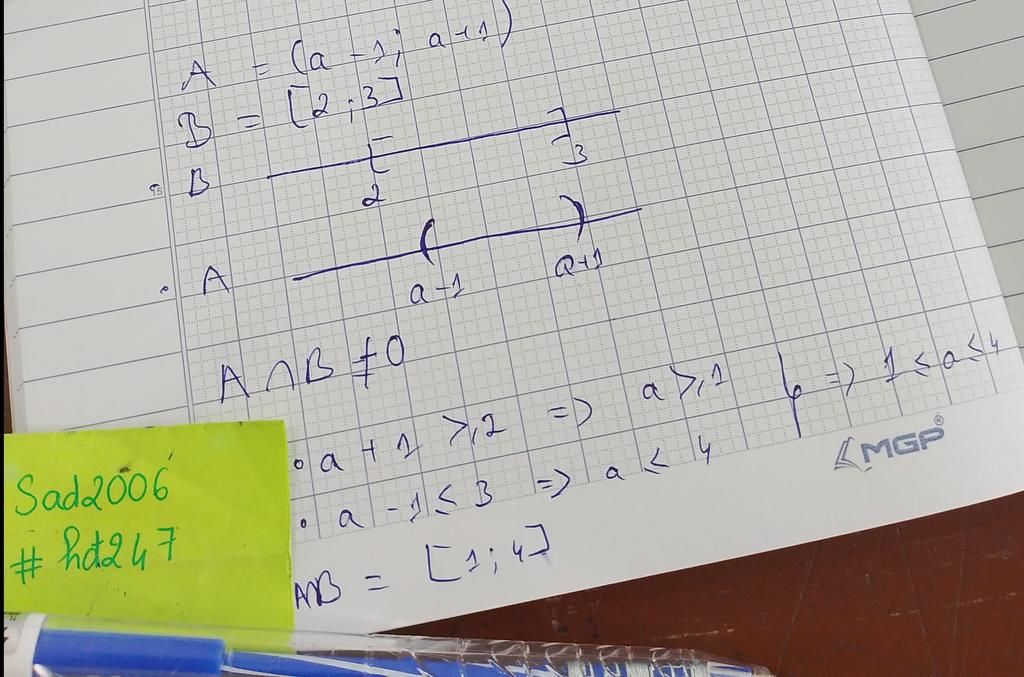 A = (a - 1; a + 1)
B = [2 ; 3]
B
2
3
A
a - 1
a + 1
A ∩ B ≠ 0
• a + 1 ≥ 2 => a ≥ 1
• a - 1 ≤ 3 => a ≤ 4
} => 1 ≤ a ≤ 4
MGP®
A∩B = [1; 4]
Sad2006
# hd247